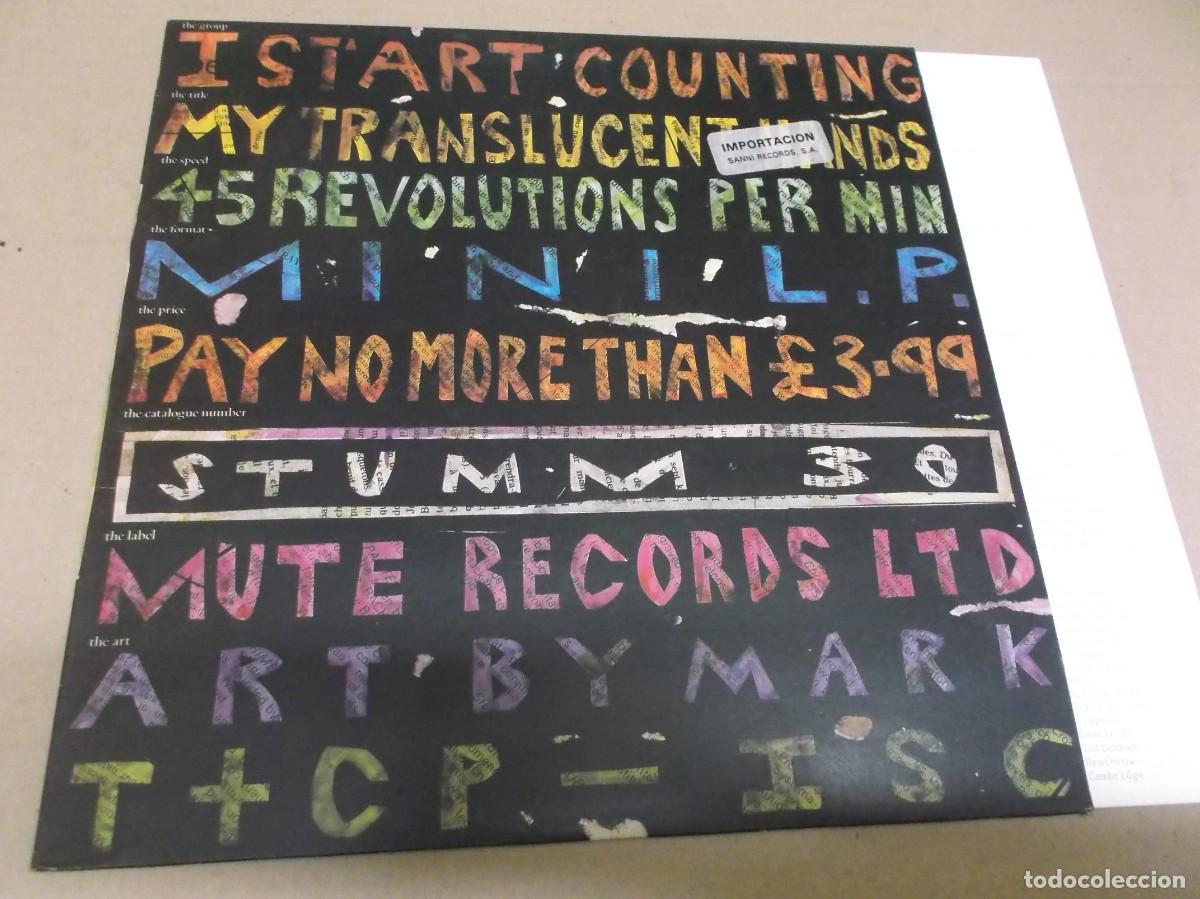 the group
I START COUNTING
the title
MY TRANSLUCENT HANDS
IMPORTACION
SANNI RECORDS, S.A.
the speed
45 REVOLUTIONS PER MIN
the format
MINI L.P.
the price
PAY NO MORE THAN £3.99
the catalogue number
STUMM 30
the label
MUTE RECORDS LTD
the art
ART BY MARK
T+CP—ISC
Castle
Tottenham
Heathrow
Cambridge
todocoleccion